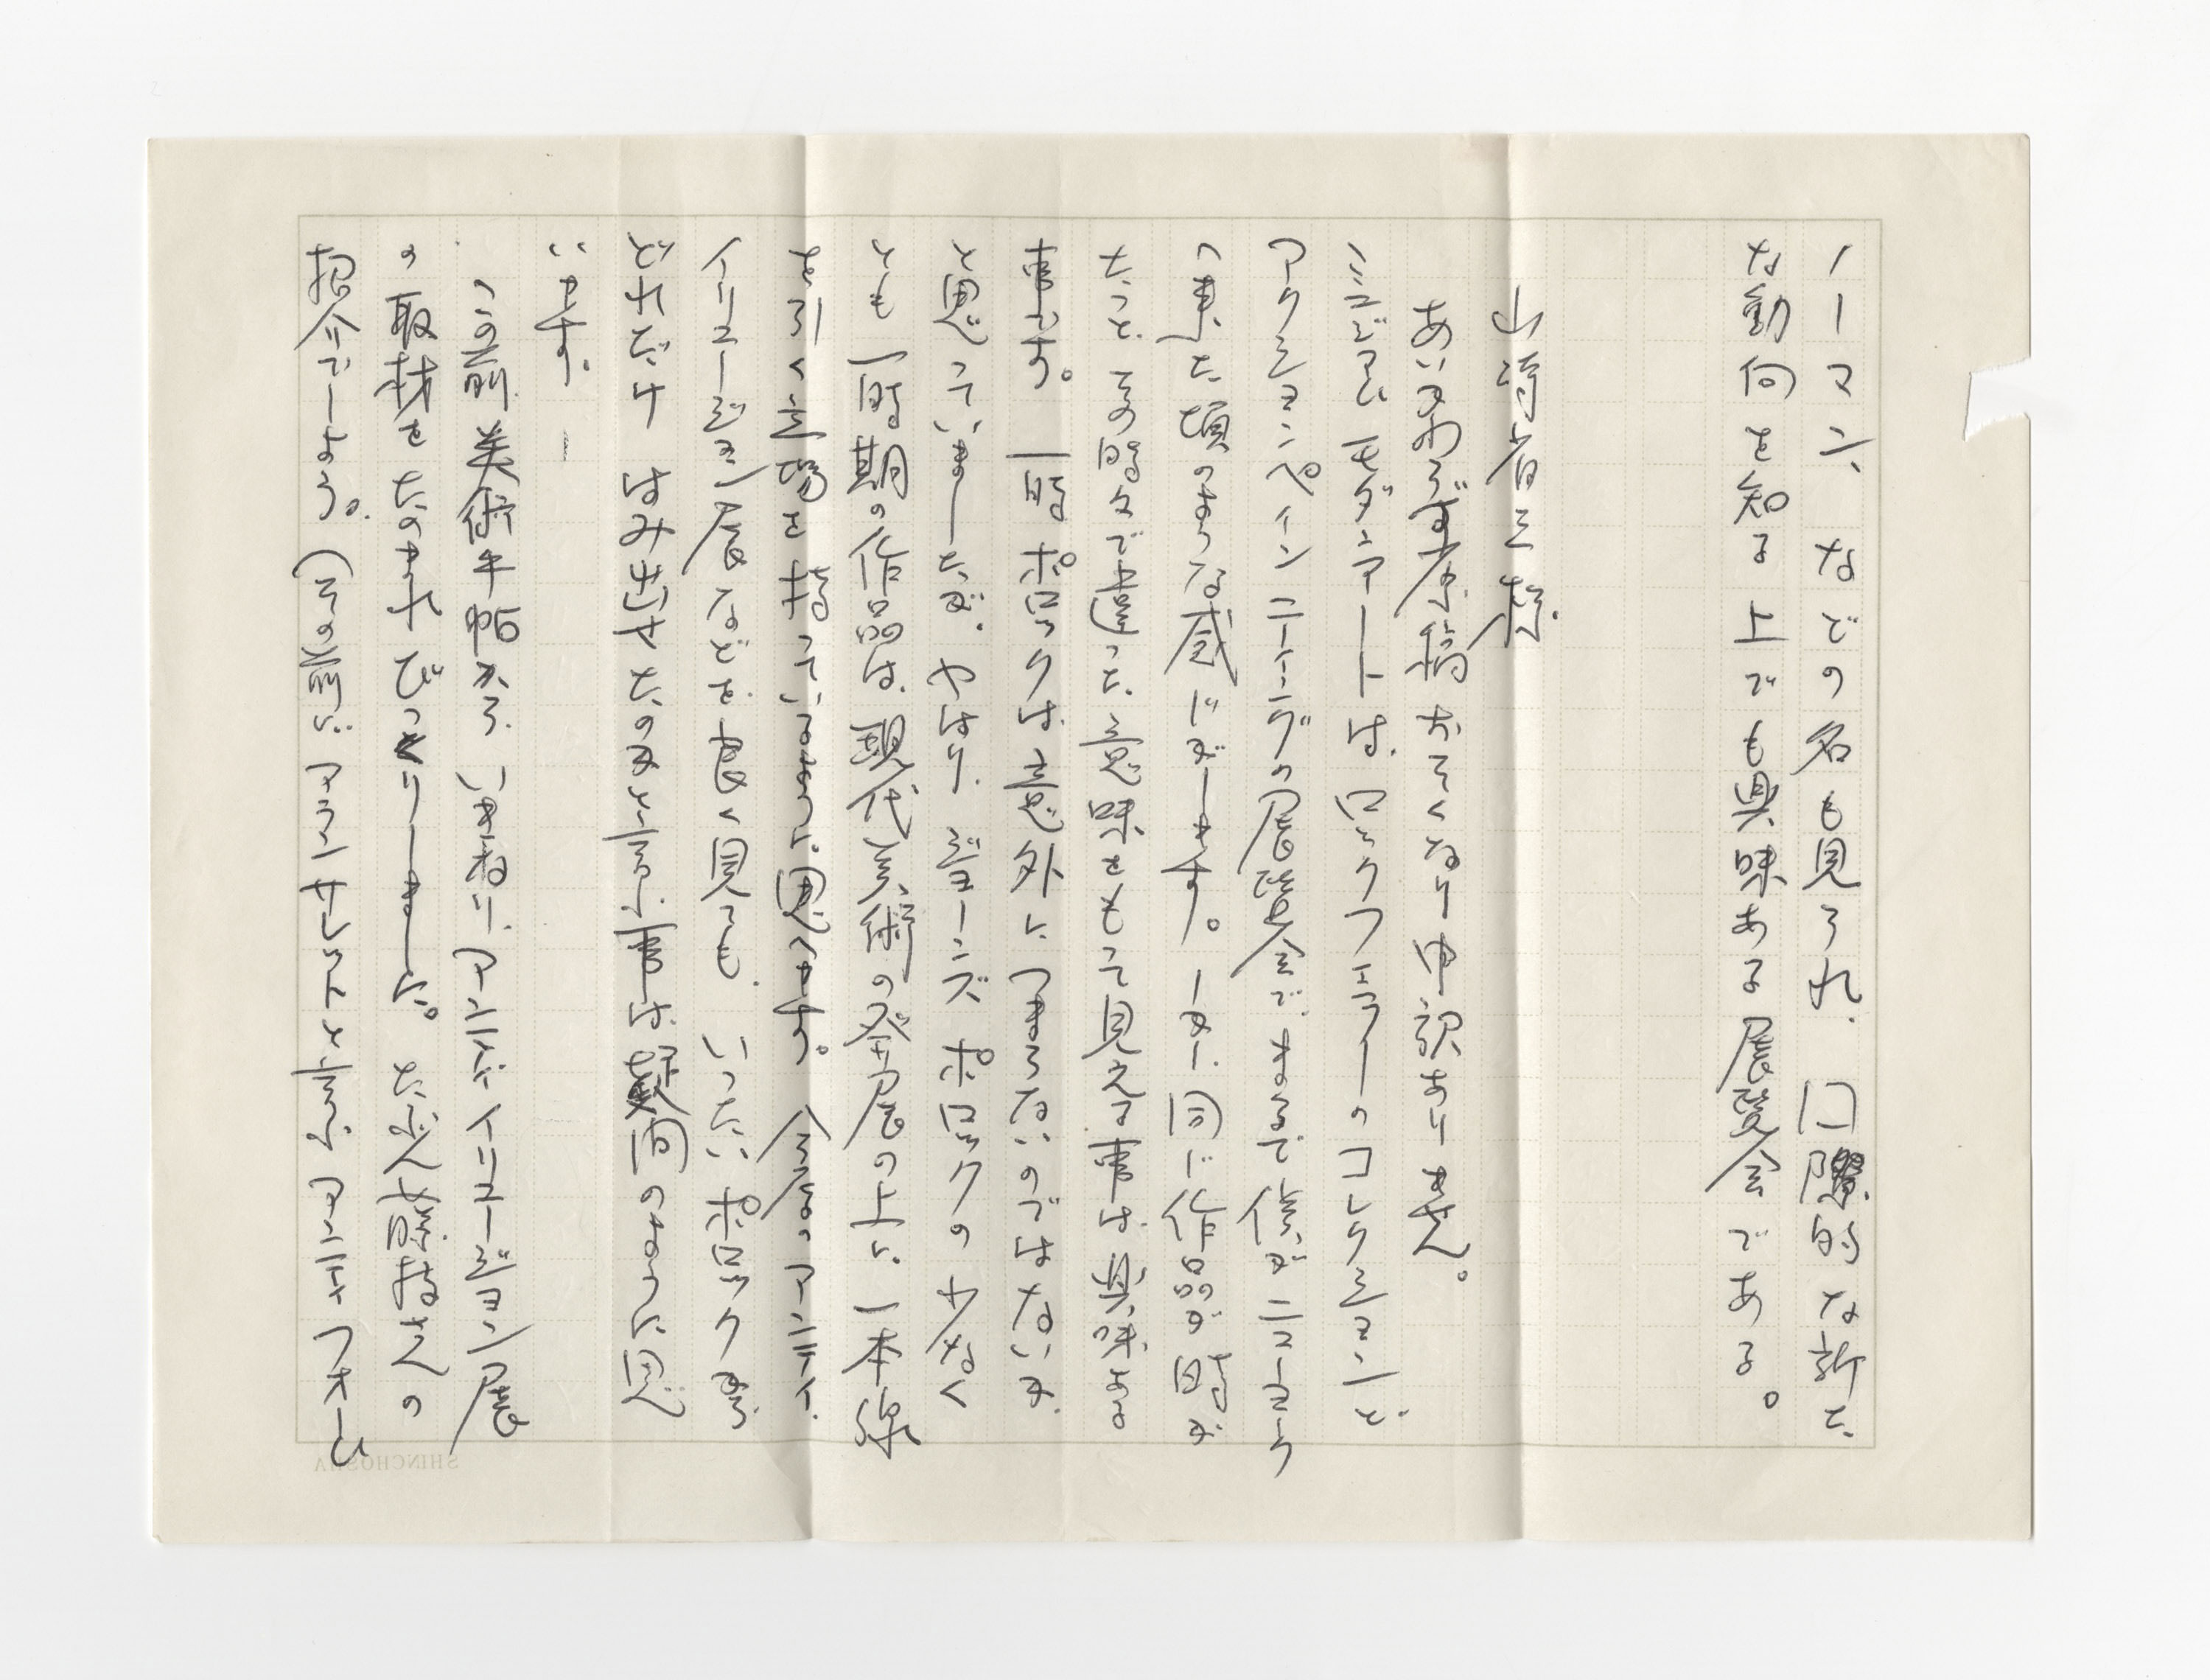 ノーマン、などの名も見られ、囗際的な新た
な動向を知る上でも興味ある展覧会である。
山崎省三様
あいかわらず原稿おそくなり申訳ありません。
ミニどマル モダンアートは、ロックフェラーのコレクションと
アクションペインティングの展覧会で、まるで僕がニューヨーク
へ来た頃のような感じがします。しかし、同じ作品が時が
たつと、その時々で違った意味をもって見える事は興味ある
事です。一時ポロックは意外につまらないのではないか、
と思っていましたが、やはり、ジョーンズ ポロックの少なく
とも一時期の作品は、現代美術の発展の上に一本線
を引く立場を持っているように思へます。今度のアンティ・
イリュージョン展などを良く見ても、いったいポロックから
どれだけはみ出せたのかと言ふ事は疑問のように思
います。
この前美術手帖から、いきなり、アンティ・イリュージョン展
の取材をたのまれびっくりしました。たぶん山崎さんの
紹介でしょう。(この前に アラン サレットと言ふ アンティ フォーム
SHINCHOSHA